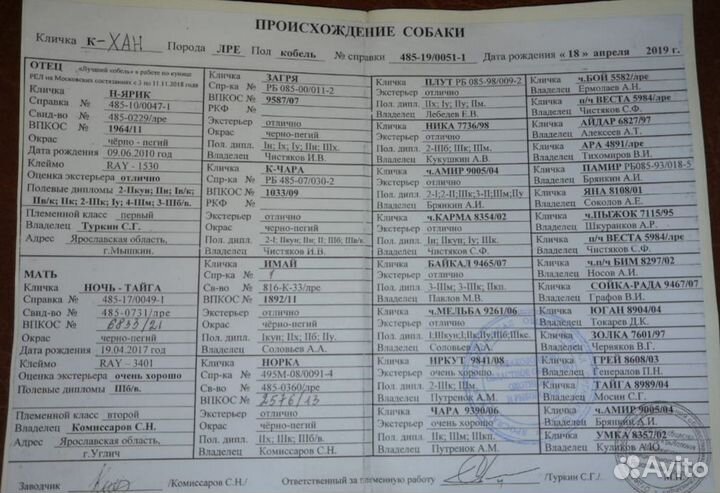 ПРОИСХОЖДЕНИЕ СОБАКИ
Кличка К-ХАН Порода ЛРЕ Пол кобель № справки 485-19/0051-1 Дата рождения «18» апреля 2019 г.
ОТЕЦ «Лучший кобель» в работе по кунице
РЕЛ на Московских состязаниях с 3 по 11.11.2018 года
Кличка Н-ЯРИК
Справка № 485-10/0047-1
Свид-во № 485-0229/лре
ВПКОС № 1964/11
Окрас чёрно - пегий
Дата рождения 09.06.2010 год
Клеймо RAY - 1530
Оценка экстерьера отлично
Полевые дипломы 2-IIкун; IIн; Iв/к;
IIв/к; IIк; 2-IIIк; Iу; 4-IIIм; 3-IIIб/в.
Племенной класс первый
Владелец Туркин С.Г.
Адрес Ярославская область,
г.Мышкин.
МАТЬ
Кличка НОЧЬ - ТАЙГА
Справка № 485-17/0049-1
Свид-во № 485-0731/дре
ВПКОС № 6833/21
Окрас черно-пегий
Дата рождения 19.04.2017 год
Клеймо RAY - 3401
Оценка экстерьера очень хорошо
Полевые дипломы IIIб/в.
Племенной класс второй
Владелец Комиссаров С.Н.
Адрес Ярославская область,
г.Углич
Кличка ЗАГРЯ
Спр-ка № РБ 085-00/011-2
ВПКОС № 9587/07
РКФ №
Экстерьер отлично
Окрас черно-пегий
Пол. дипл. Iн; Iк; Iу; IIн; IIIк.
Владелец Чистяков И.В.
Кличка К-ЧАРА
Спр-ка № РБ 485-07/030-2
ВПКОС № 1033/09
РКФ №
Экстерьер отлично
Окрас черно-пегий
Пол. дипл. 2-I; IIкун; IIн; II; IIIб; IIIв/в.
Владелец Чистяков И.В.
Кличка ИМАЙ
Спр-ка №
Св-во 816-К-33/лре
ВПКОС № 1892/11
Экстерьер отлично
Окрас чёрно-пегий
Пол. дипл. Iкун; IIх; IIб; IIу.
Владелец Соловьев А.А.
Кличка НОРКА
Спр-ка № 495М-08/0091-4
Св-во № 485-0360/дре
ВПКОС № 2576/13
Экстерьер отлично
Окрас чёрно-пегий
Пол. дипл. IIх; IIIк; IIIб/в.
Владелец Комиссаров С.Н.
Кличка ПЛУТ РБ 085-98/009-2
Экстерьер отлично
Пол. дипл. IIх; Iу; IIу; IIм.
Владелец Лебедев Е.В.
Кличка НИКА 7736/98
Экстерьер отлично
Пол. дипл. 2-IIIб; IIIк; IIIм.
Владелец Кукушкин А.В.
Кличка ч.АМИР 9005/04
Экстерьер отлично
Пол. дипл. 2-I;2-II;IIIк;3-II;IIIм;IIу
Владелец Брянкин А.И.
Кличка ч.КАРМА 8354/02
Экстерьер отлично
Пол. дипл. Iн; IIкун; Iу; IIIк.
Владелец Чистяков С.Ф.
Кличка БАЙКАЛ 9465/07
Экстерьер отлично
Пол. дипл. 3-IIIм; 3-IIIк; IIкп.
Владелец Павлов М.В.
Кличка ч.МЕЛЬБА 9261/06
Экстерьер отлично
Владелец Соловьев А.А.
Кличка ИРКУТ 9841/08
Экстерьер отлично
Пол. дипл. 2-IIIк; IIIм.
Владелец Путренок А.М.
Кличка ЧАРА 9390/06
Экстерьер очень хорошо
Пол. дипл. IIк; IIIм; IIIкп.
Владелец Путренок А.М.
Кличка ч.БОЙ 5582/лре
Владелец Ермолаев А.Н.
Кличка п/ч ВЕСТА 5984/лре
Владелец Чистяков С.Ф.
Кличка АЙДАР 6827/97
Владелец Алексеев А.Т.
Кличка АРА 4891/лре
Владелец Тихомиров В.И.
Кличка ПАМИР РБ085-93/018-5
Владелец Брянкин А.И.
Кличка ЯНА 8108/01
Владелец Соколов А.Е.
Кличка ч.ПЫЖОК 7115/95
Владелец Шкуранков А.Р.
Кличка п/ч ВЕСТА 5984/лре
Владелец Чистяков С.Ф.
Кличка ч.п/ч БИМ 8297/02
Владелец Носов А.И.
Кличка СОЙКА-РАДА 9467/07
Владелец Графов В.И.
Кличка ЮГАН 8904/04
Владелец Токарев Д.К.
Кличка ЗОЛКА 7601/97
Владелец Черняков В.Г.
Кличка ГРЕЙ 8608/03
Владелец Генералов П.Н.
Кличка ТАЙГА 8989/04
Владелец Мосин С.Г.
Кличка ч.АМИР 9005/04
Владелец Брянкин А.И.
Кличка УМКА 8357/02
Владелец Куликов А.Ю.
Заводчик /Комиссаров С.Н./ Ответственный за племенную работу /Туркин С.Г./
Avito